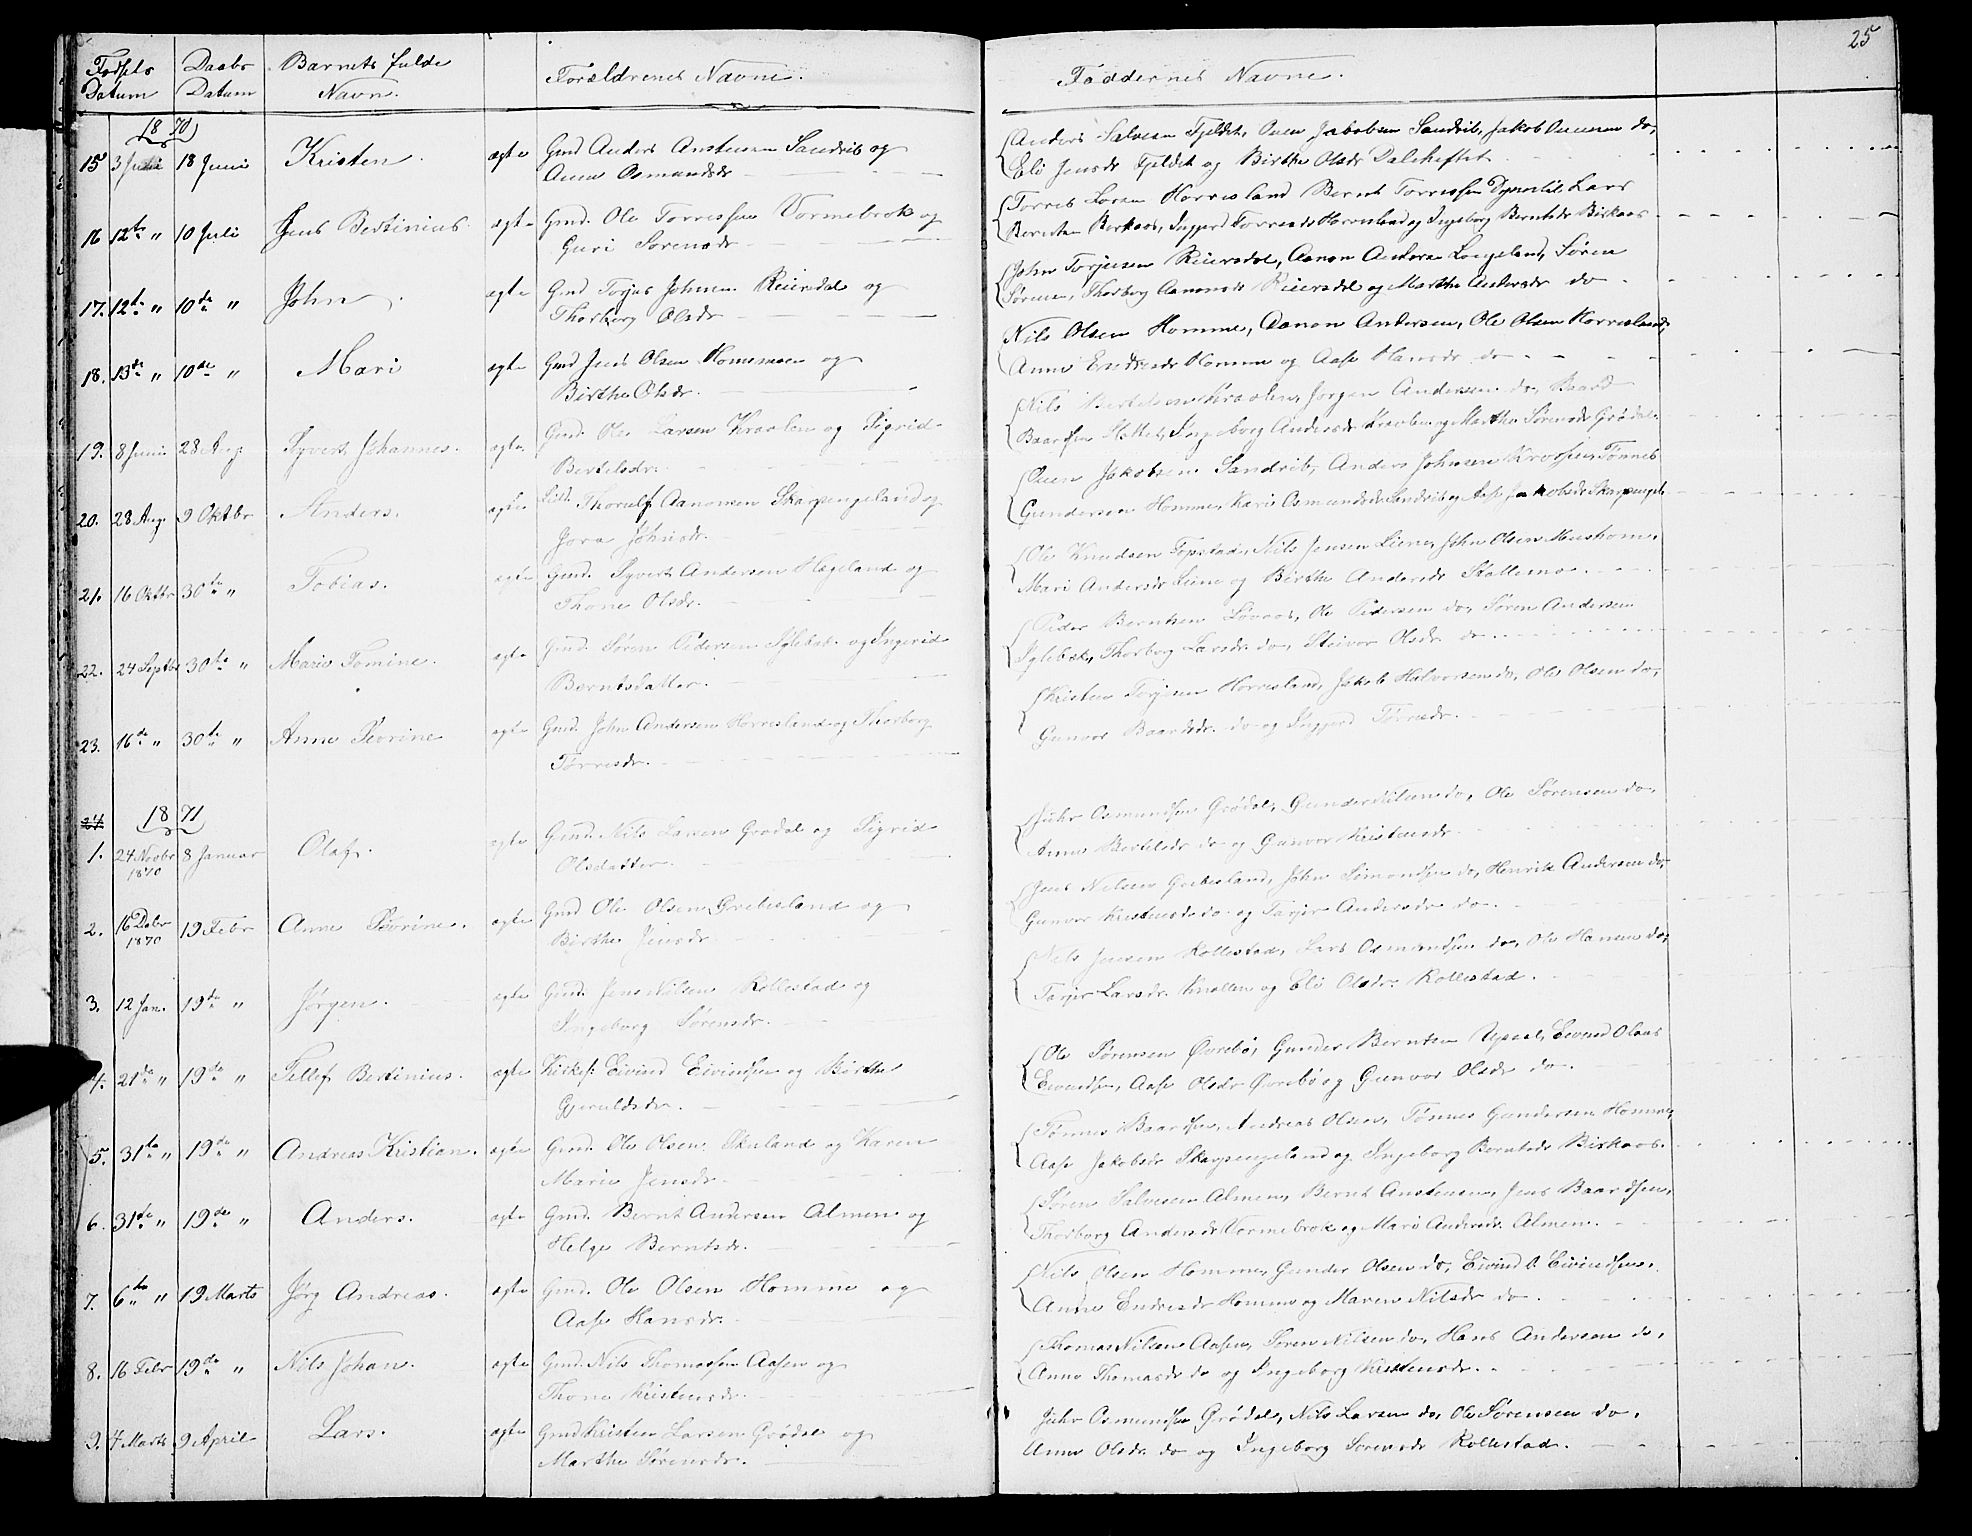 25
Fødsels Datum
Daabs Datum
Barnets fulde Navn.
Forældrenes Navne.
Faddernes Navne.
1870
15 3 Juni 18 Juni Kristen. ægte Gmd Anders Anstensen Sandrib og
Anna Osmundsdr
Anders Salvesen Fjeldet, Ouen Jakobsen Sandrib, Jakob Ouensen do,
Eli Jensdr Fjeldet og Birthe Olsdr Daleheftet
16 12te " 10 Juli Jens Bertinius. ægte Gmd. Ole Torressen Vormebrok og
Guri Sorensdr
Torres Larsen Horrisland Bernt Torressen Lars
Berntsen Birkaas, Ingjerd Torresdr Horrisland og Ingeborg Berntsdr Birkaas
17. 12te " 10de " John. ægte Gmd Torjus Johnsen Reiersdal og
Thorborg Olsdr
John Torjusen Reiersdal, Aanon Anders Longeland, Søren
Sørensen, Thorborg Aanonsdr Reiersdal og Marthe Andersdr do
18. 13de " 10de " Mari ægte Gmd Jens Olsen Homemoen og
Birthe Olsdr.
Nils Olsen Homme, Aanon Andersen, Ole Olsen Horrisland,
Anne Endresdr Homme og Aase Hansdr do
19. 8 Juni 28 Aug. Syvert Johannes. ægte. Gmd. Ole Larsen Kraolen og Sigrid
Bertelsdr.
Nils Bertelsen Kraolen, Jørgen Andersen do, Baard
Baardsen Ingeborg Andersdr Kraolen og Marthe Sørensdr Grødal.
20. 28 Aug. 9 Oktbr Anders. ægte Thorulf Aanonsen Skarpengeland og
Jora Johnsdr.
Ouen Jakobsen Sandrib, Anders Johnsen Tønnes
Gundersen Homme, Kari Osmundsdr Sandrib og Aase Jakobsdr Skarpengel.
21. 16 Oktbr 30te " Tobias. ægte Gmd. Syvert Andersen Hægeland og
Thone Olsdr.
Ole Knudsen Fopstad, Nils Jensen Liene, John Olsen
Mari Andersdr Liene og Birthe Andersdr Stallemo.
22. 24 Septbr 30te " Marie Tomine. ægte Gmd. Søren Pedersen Sglebæk og Ingerid
Berntsdatter.
Peder Berntsen Løvaas, Ole Pedersen do, Søren Andersen
Sglebæk, Thorborg Larsdr do, Steivor Olsdr do
23. 16de " 30te " Anne Severine ægte Gmd. John Andersen Horrisland og Thorborg
Tørresdr.
Kristen Torjusen Horrisland, Jakob Halvorsen do, Ole Olsen do,
Gunvor Baardsdr. do og Ingjerd Tørresdr.
24
1871
1. 24 Novbr 1870 8 Januar Olaf. ægte Gmd. Nils Larsen Grødal og Sigrid
Olsdatter.
Osmundsen Grødal, Gunder Nilsen do, Ole Sørensen do,
Anne Bertelsdr do og Gunvor Kristensdr
2. 16 Debr 1870 19 Febr Anne Severine. ægte Gmd Ole Olsen Grebesland og
Birthe Jensdr.
Jens Nielsen Grebesland, John Simondsen do, Henrik Andersen do,
Gunvor Kristensdr do og Tarjer Andersdr do.
3. 12 Jan. 19de " Jørgen. ægte Gmd. Jens Nilsen Rollestad og
Ingeborg Sørensdr.
Nils Jensen Rollestad, Lars Osmundsen do, Ole Hansen do,
Tarjer Larsdr. og Eli Olsdr. Rollestad.
4. 21de " 19de " Tellef Bertinius. ægte Kirkes: Eivind Eivindsen og Birthe
Gjeruldsdr.
Ole Sørensen Øvrebø, Gunder Berntsen Upsal, Eivind Olaus
Eivindsen, Aase Olsdr Øvrebø og Gunvor Olsdr do.
5. 31te " 19de " Andreas Kristian. ægte Gmd. Ole Olsen Skuland og Karen
Marie Jensdr.
Tønnes Baardsen, Andreas Olsen, Tønnes Gundersen Homme,
Aase Jakobsdr Skarpengeland og Ingeborg Berntsdr Birkaas.
6. 31te " 19de " Anders. ægte Gmd. Bernt Andersen Almen og
Helge Berntsdr.
Søren Salvesen Almen, Bernt Anstensen, Jens Baardsen,
Thorborg Andersdr Vormebrok og Mari Andersdr. Almen.
7. 6te " " 19 Marts Jørg Andreas. ægte Gmd. Ole Olsen Homme og
Aase Hansdr.
Nils Olsen Homme, Gunder Olsen do, Eivind O. Eivindsen,
Anne Endresdr Homme og Maren Nilsdr do.
8. 16 Febr 19de " Nils Johan. ægte Gmd. Nils Thomassen Aasen og
Thone Kristensdr.
Thomas Nilsen Aasen, Søren Nilsen do, Hans Andersen do,
Anne Thomasdr do og Ingeborg Kristensdr.
9. 4 Marts 9 April Lars. ægte Gmd Kristen Larsen Grødal og
Marthe Sørensdr.
Osmundsen Grødal, Nils Larsen do, Ole Sørensen do,
Anne Olsdr. do og Ingeborg Sorensdr Rollestad.